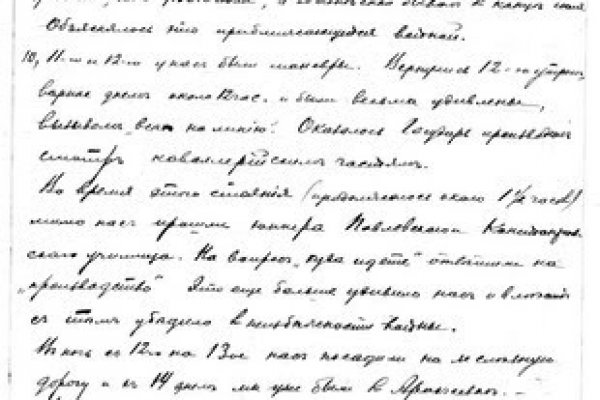 Объяснялось это приближающейся войной.
10, 11-го и 12-го у нас были маневры. Вернулись 12-го утром,
вернее днем около 12 час. и были весьма удивлены,
вызовом „всех на линию“. Оказалось Государь производит
смотр кавалерийским частям.
Во время этого стояния (продолжалось около 1½ часов)
мимо нас прошли юнкера Павловского
ского училища. На вопрос „куда идете“ ответили на
„производство“ Это еще больше удивило нас и
с тем убедило в неизбежности войны.
В ночь с 12-го на 13-ое нас посадили на железную
дорогу и 14 днем мы уже были в